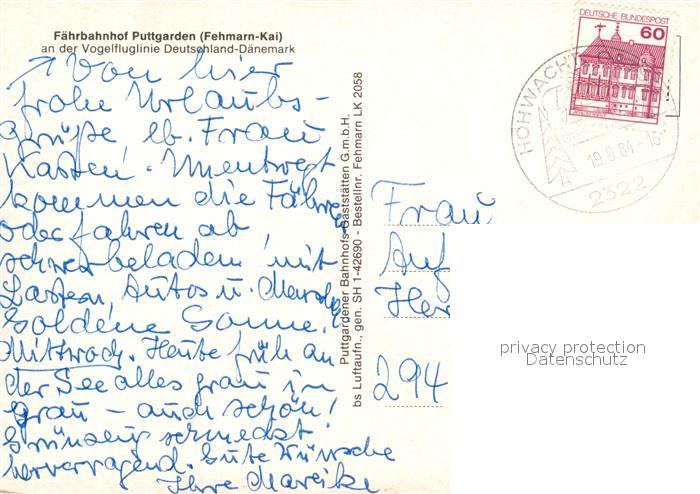 Fährbahnhof Puttgarden (Fehmarn-Kai)
an der Vogelfluglinie Deutschland-Dänemark
Von hier
frohe Urlaubs-
grüße lb. Frau
Kasten! Unentwegt
kommen die Fähren
oder fahren ab,
schwer beladen mit
Lasten, Autos u. Mensch
Goldene Sonne.
Mittwoch. Heute früh an
der See alles grau in
grau – auch schön!
schmeckt
hervorragend. Gute Wünsche
Ihre Mareike
Puttgardener Bahnhofs-Gaststätten G.m.b.H.
bs Luftaufn., gen. SH 1-42690 - Bestellnr. Fehmarn LK 2058
DEUTSCHE BUNDESPOST
60
HOHWACHT
19.9.84-16
2322
Frau
Auf
Her
294
privacy protection
Datenschutz